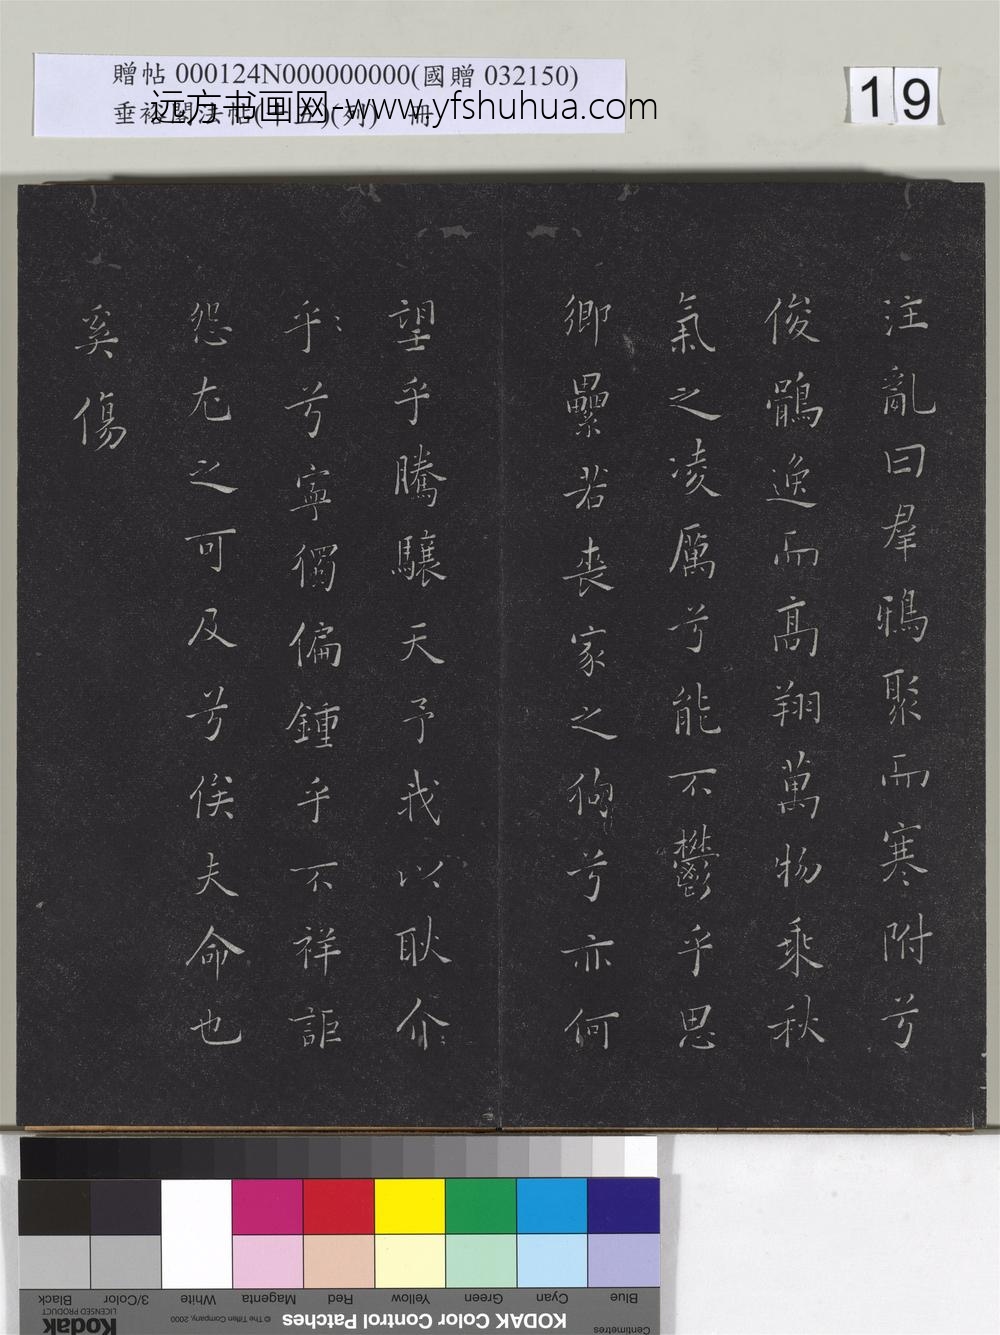 贈帖 000124N000000000(國贈 032150)
远方书画网-www.yfshuhua.com
19
注亂曰羣鴉聚而寒附兮
俊鶻逸而高翔萬物乘秋
氣之凌厲兮能不鬱乎思
鄉纍若喪家之狗兮亦何
望乎騰驤天予我以耿介
乎兮寧獨偏鍾乎不祥詎
怨尤之可及兮俟夫命也
奚傷
Black
3/Color
White
Magenta
Red
Yellow
Green
Cyan
Blue
Kodak
LICENSED PRODUCT
© The Tiffen Company, 2000
KODAK Color Control Patches
Centimetres